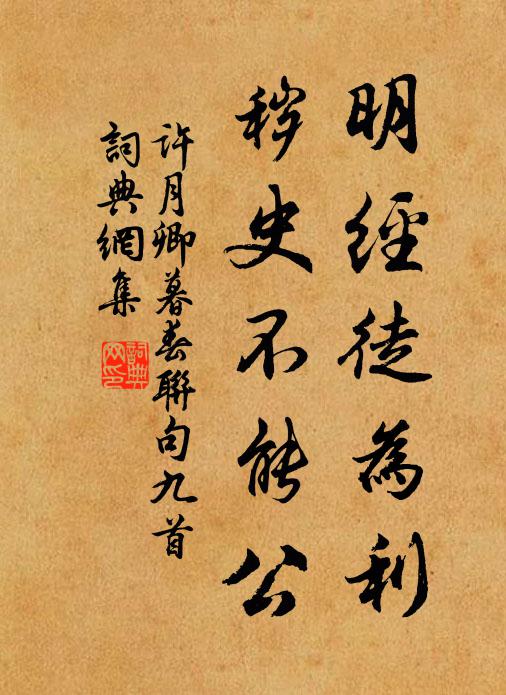 明經徒為利
穢史不能公
許月卿暮春聯句九首
詞典網集
詞典網印